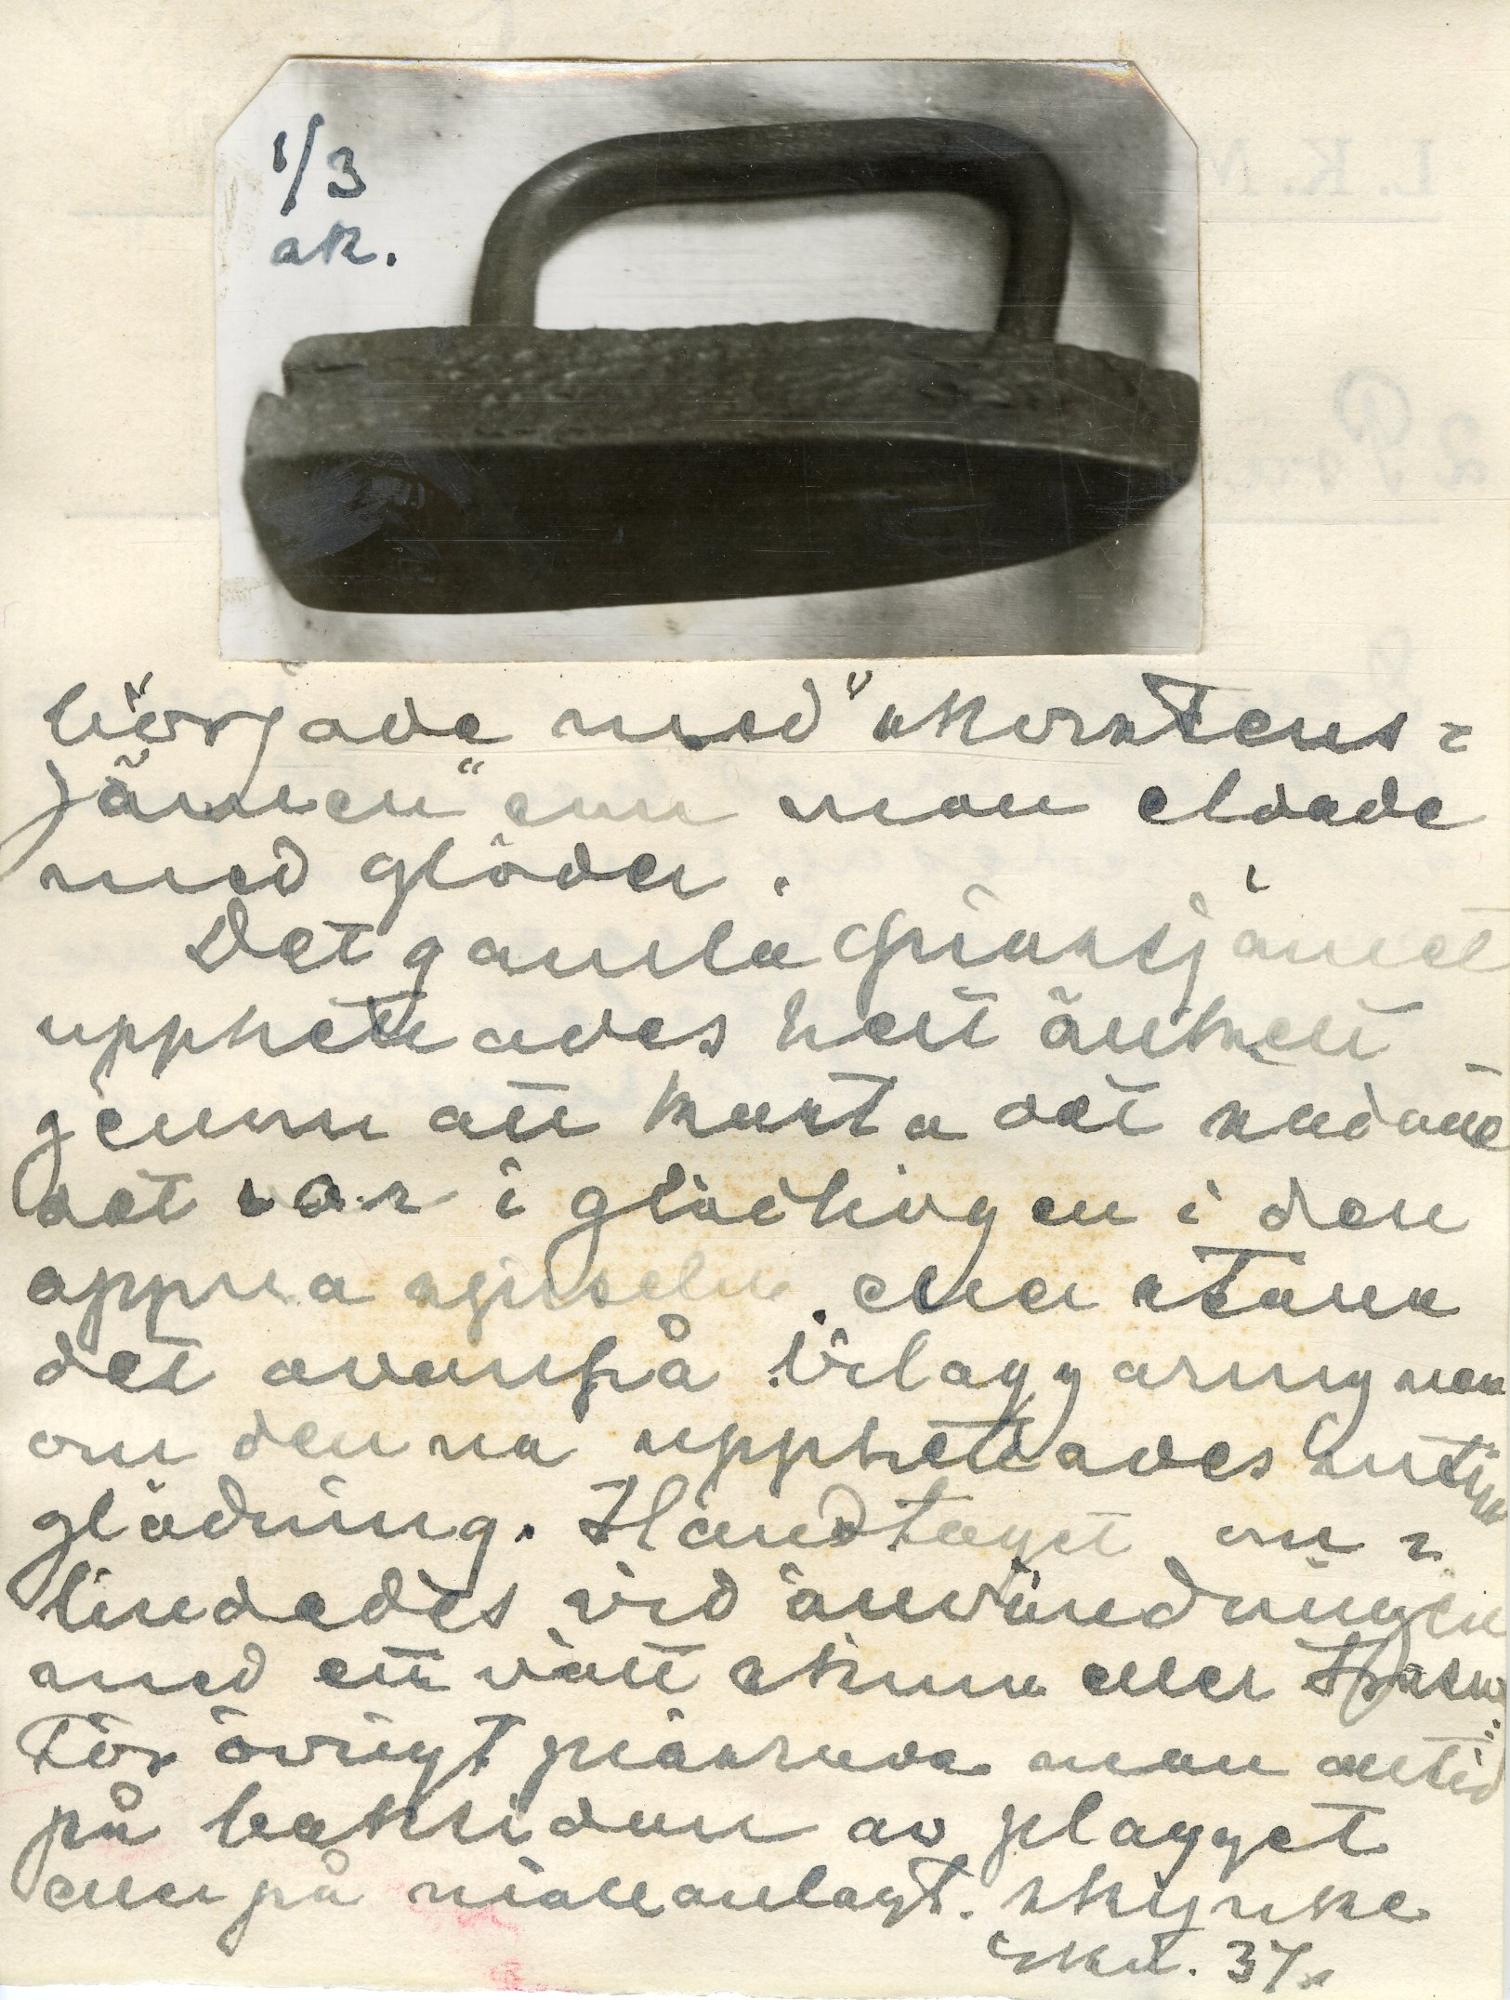 1/3
sk.
började med "skorstens=
järnen" som man eldade
med glöder.
Det gamla pressjärnet
upphettades helt enkelt
genom att kasta det sådant
det var i glödhögen i den
öppna spiseln eller ställa
det ovanpå
om denna upphettades till
glödning. Handtaget om=
lindades vid användningen
med ett vått skinn eller
För övrigt pressade man alltid
på baksidan av plagget
eller på mellanlagt. skynke
37.